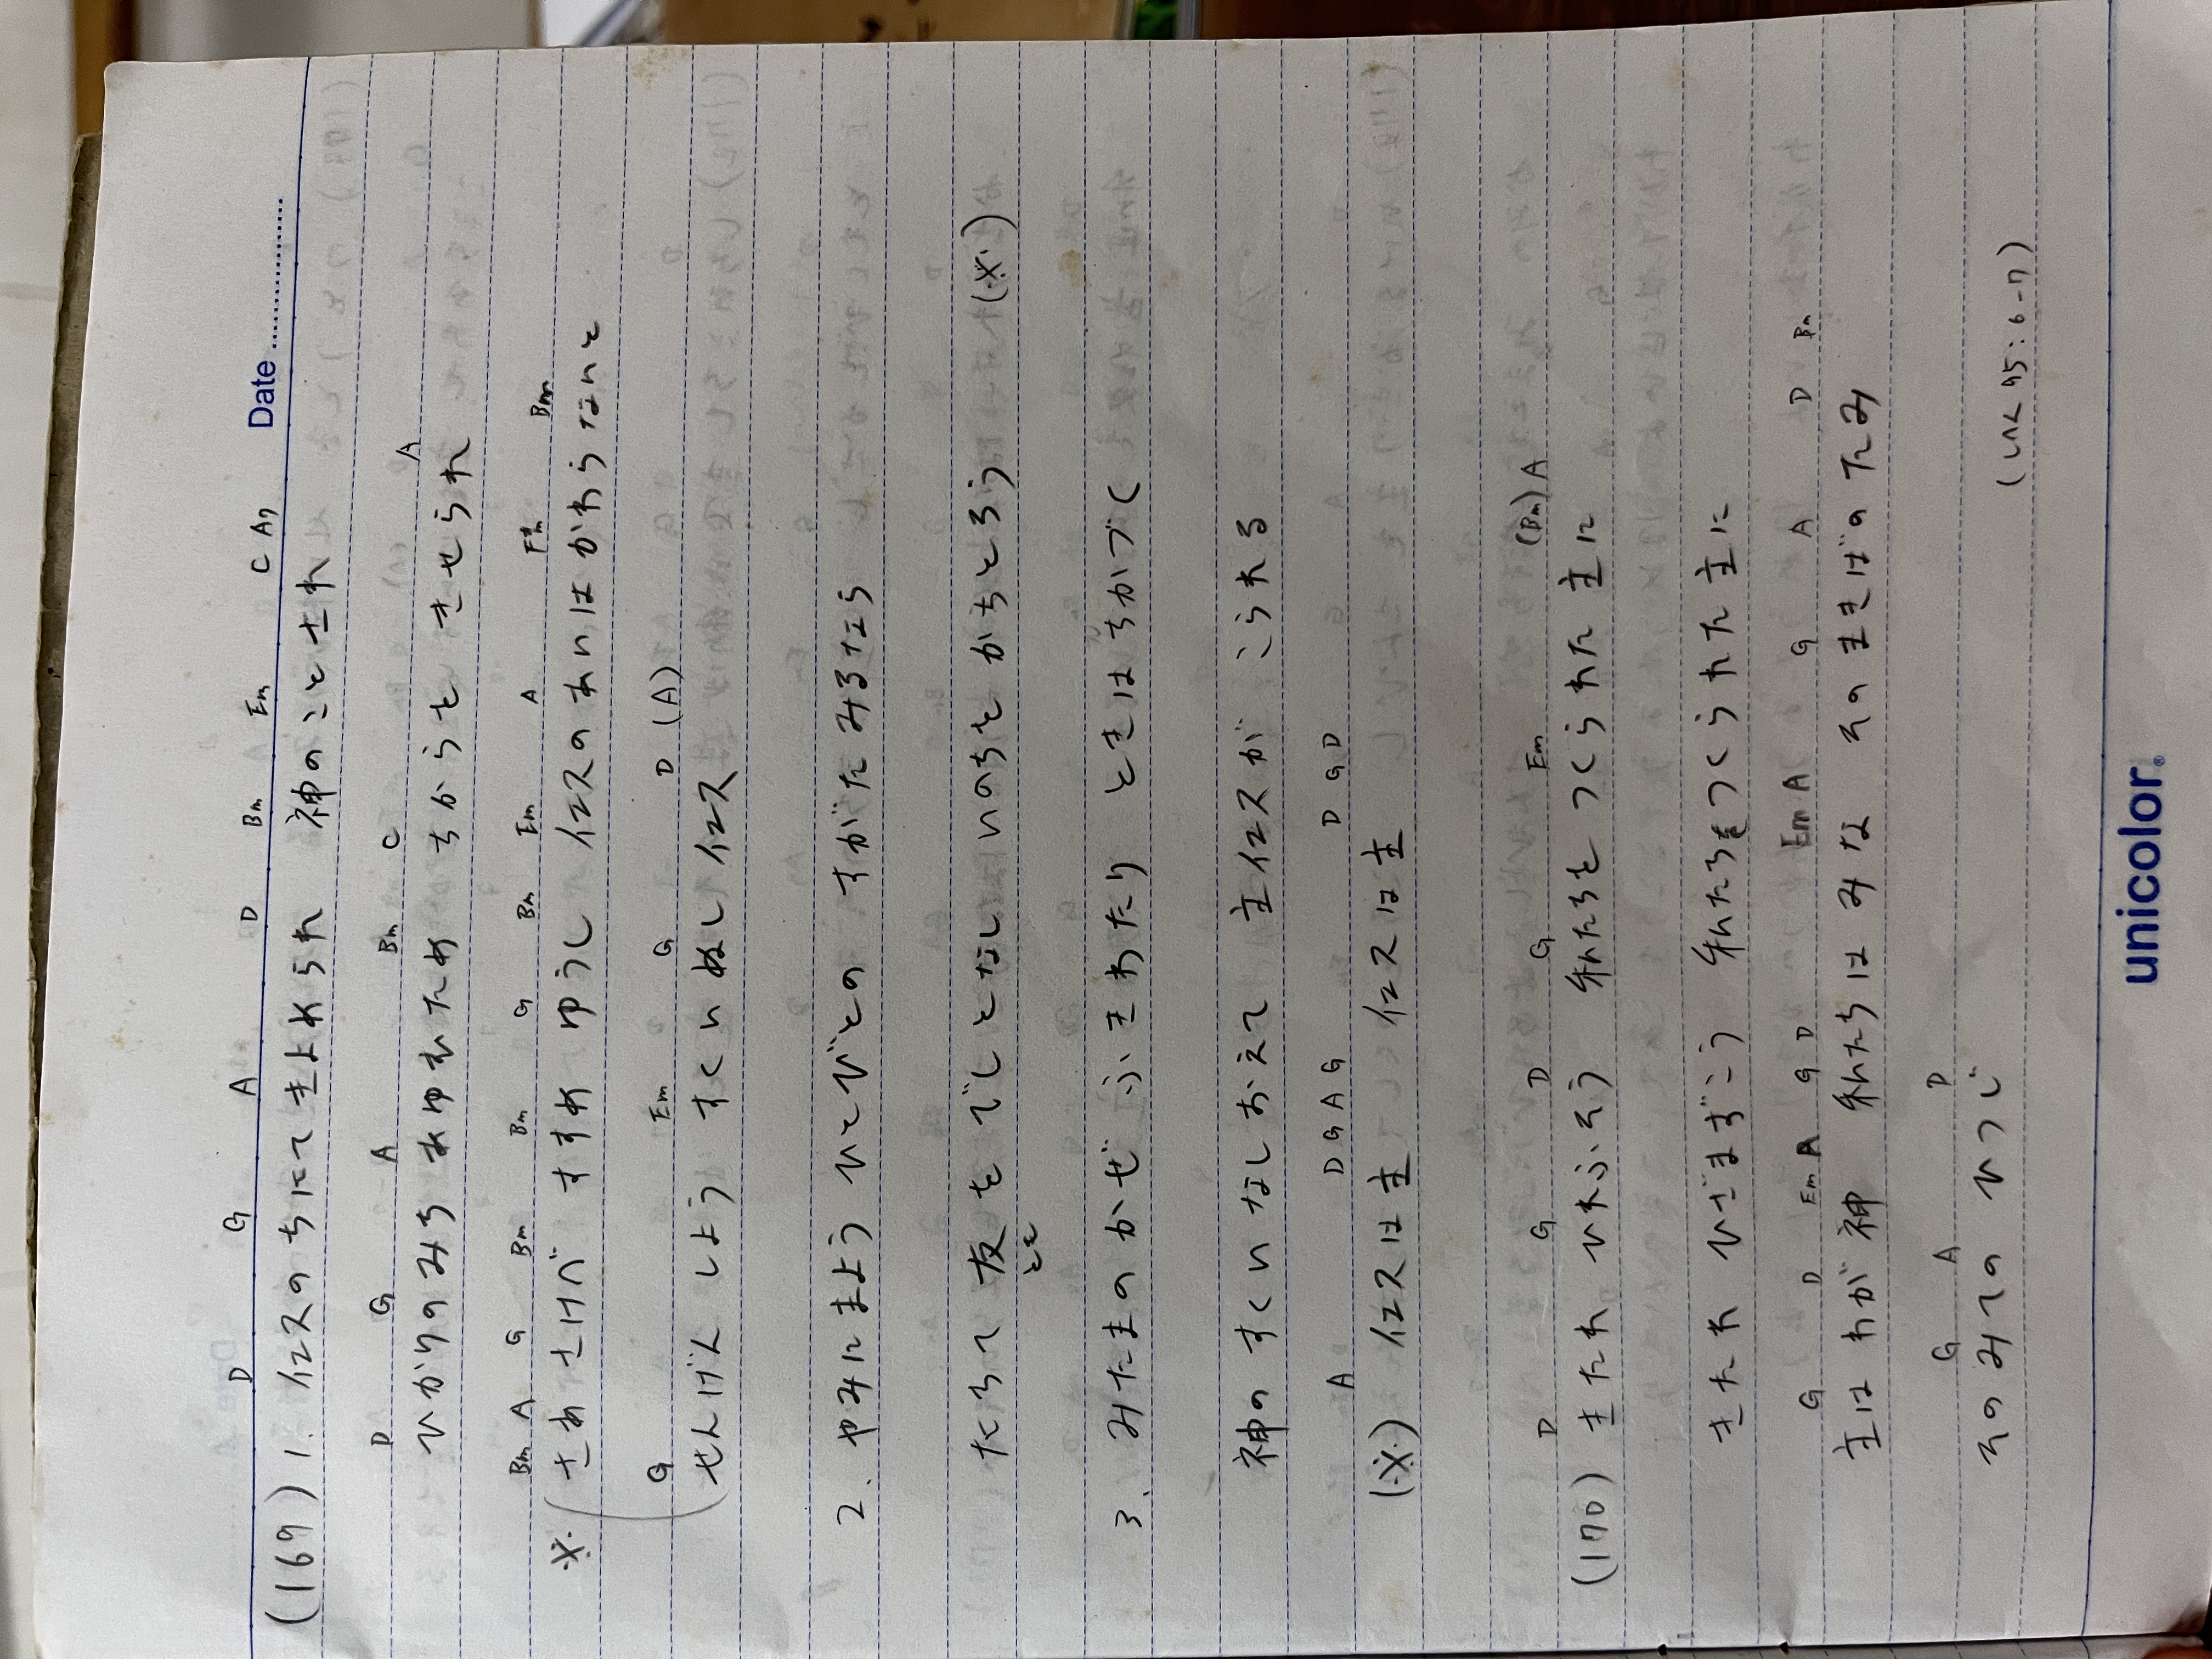 Date
D G A D Bm Em C A7
(169) 1. イエスのちにてきよめられ 神のことされ
D G A Bm C A
ひかりのみち あゆむため ちからを きせられ
Bm A G Bm Bm G Bm Em A F#m Bm
※ さあ さけべ すすめ ゆうし イエスの あいは かわらないと
G Em G D (A)
せんげん しよう すくいぬし イエス
2. やみにまよう ひとびとの すがた みるなら
たちて 友を でしとなし いのちを かちとろう (※)
とも
3. みたまのかぜ ふきわたり ときは ちかづく
神の すくい なしおえて 主イエスが こられる
A D G A G D G D
(※) イエスは主 イエスは主
D G D G Em (Bm) A
(170) きたれ ひれふそう 私たちを つくられた 主に
きたれ ひざまずこう 私たちをつくられた 主に
G D Em A G D Em A G A D Bm
主は わが 神 私たちは みな その まきばの たみ
G A D
その みての ひつじ
(しへん 95:6-7)
unicolor.